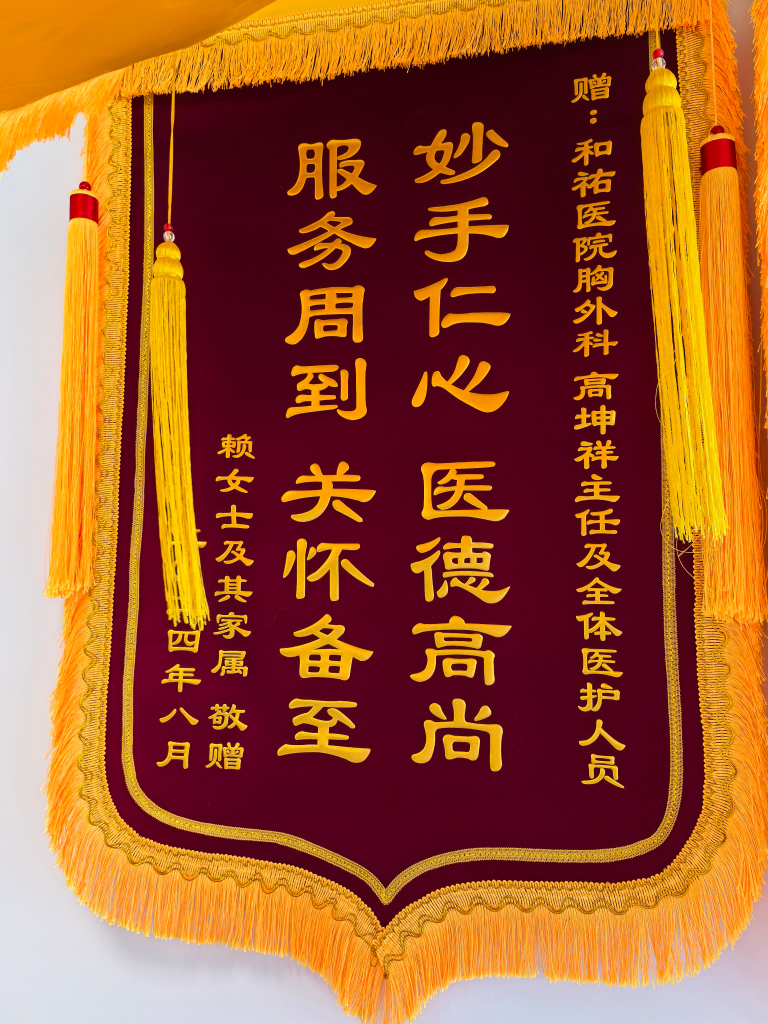 赠：和祐医院胸外科 高坤祥主任及全体医护人员
妙手仁心 医德高尚
服务周到 关怀备至
赖女士及其家属 敬赠
四年八月